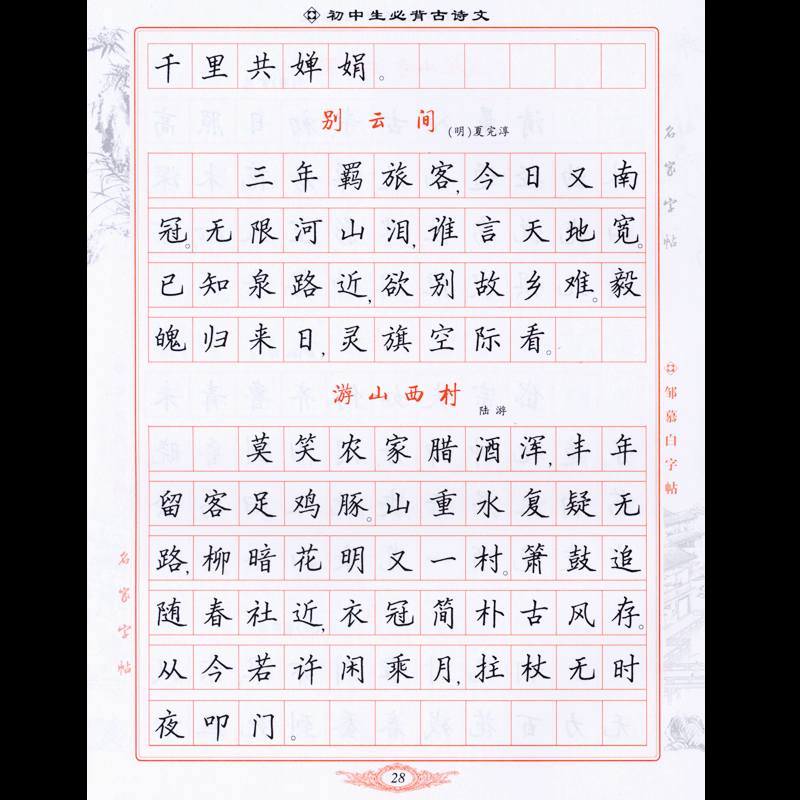 初中生必背古诗文
千里共婵娟。
别云间
(明)夏完淳
三年羁旅客,今日又南
冠。无限河山泪,谁言天地宽。
已知泉路近,欲别故乡难。毅
魄归来日,灵旗空际看。
游山西村
陆游
莫笑农家腊酒浑,丰年
留客足鸡豚。山重水复疑无
路,柳暗花明又一村。箫鼓追
随春社近,衣冠简朴古风存。
从今若许闲乘月,拄杖无时
夜叩门。
名家字帖
邹慕白字帖
名家字帖
28